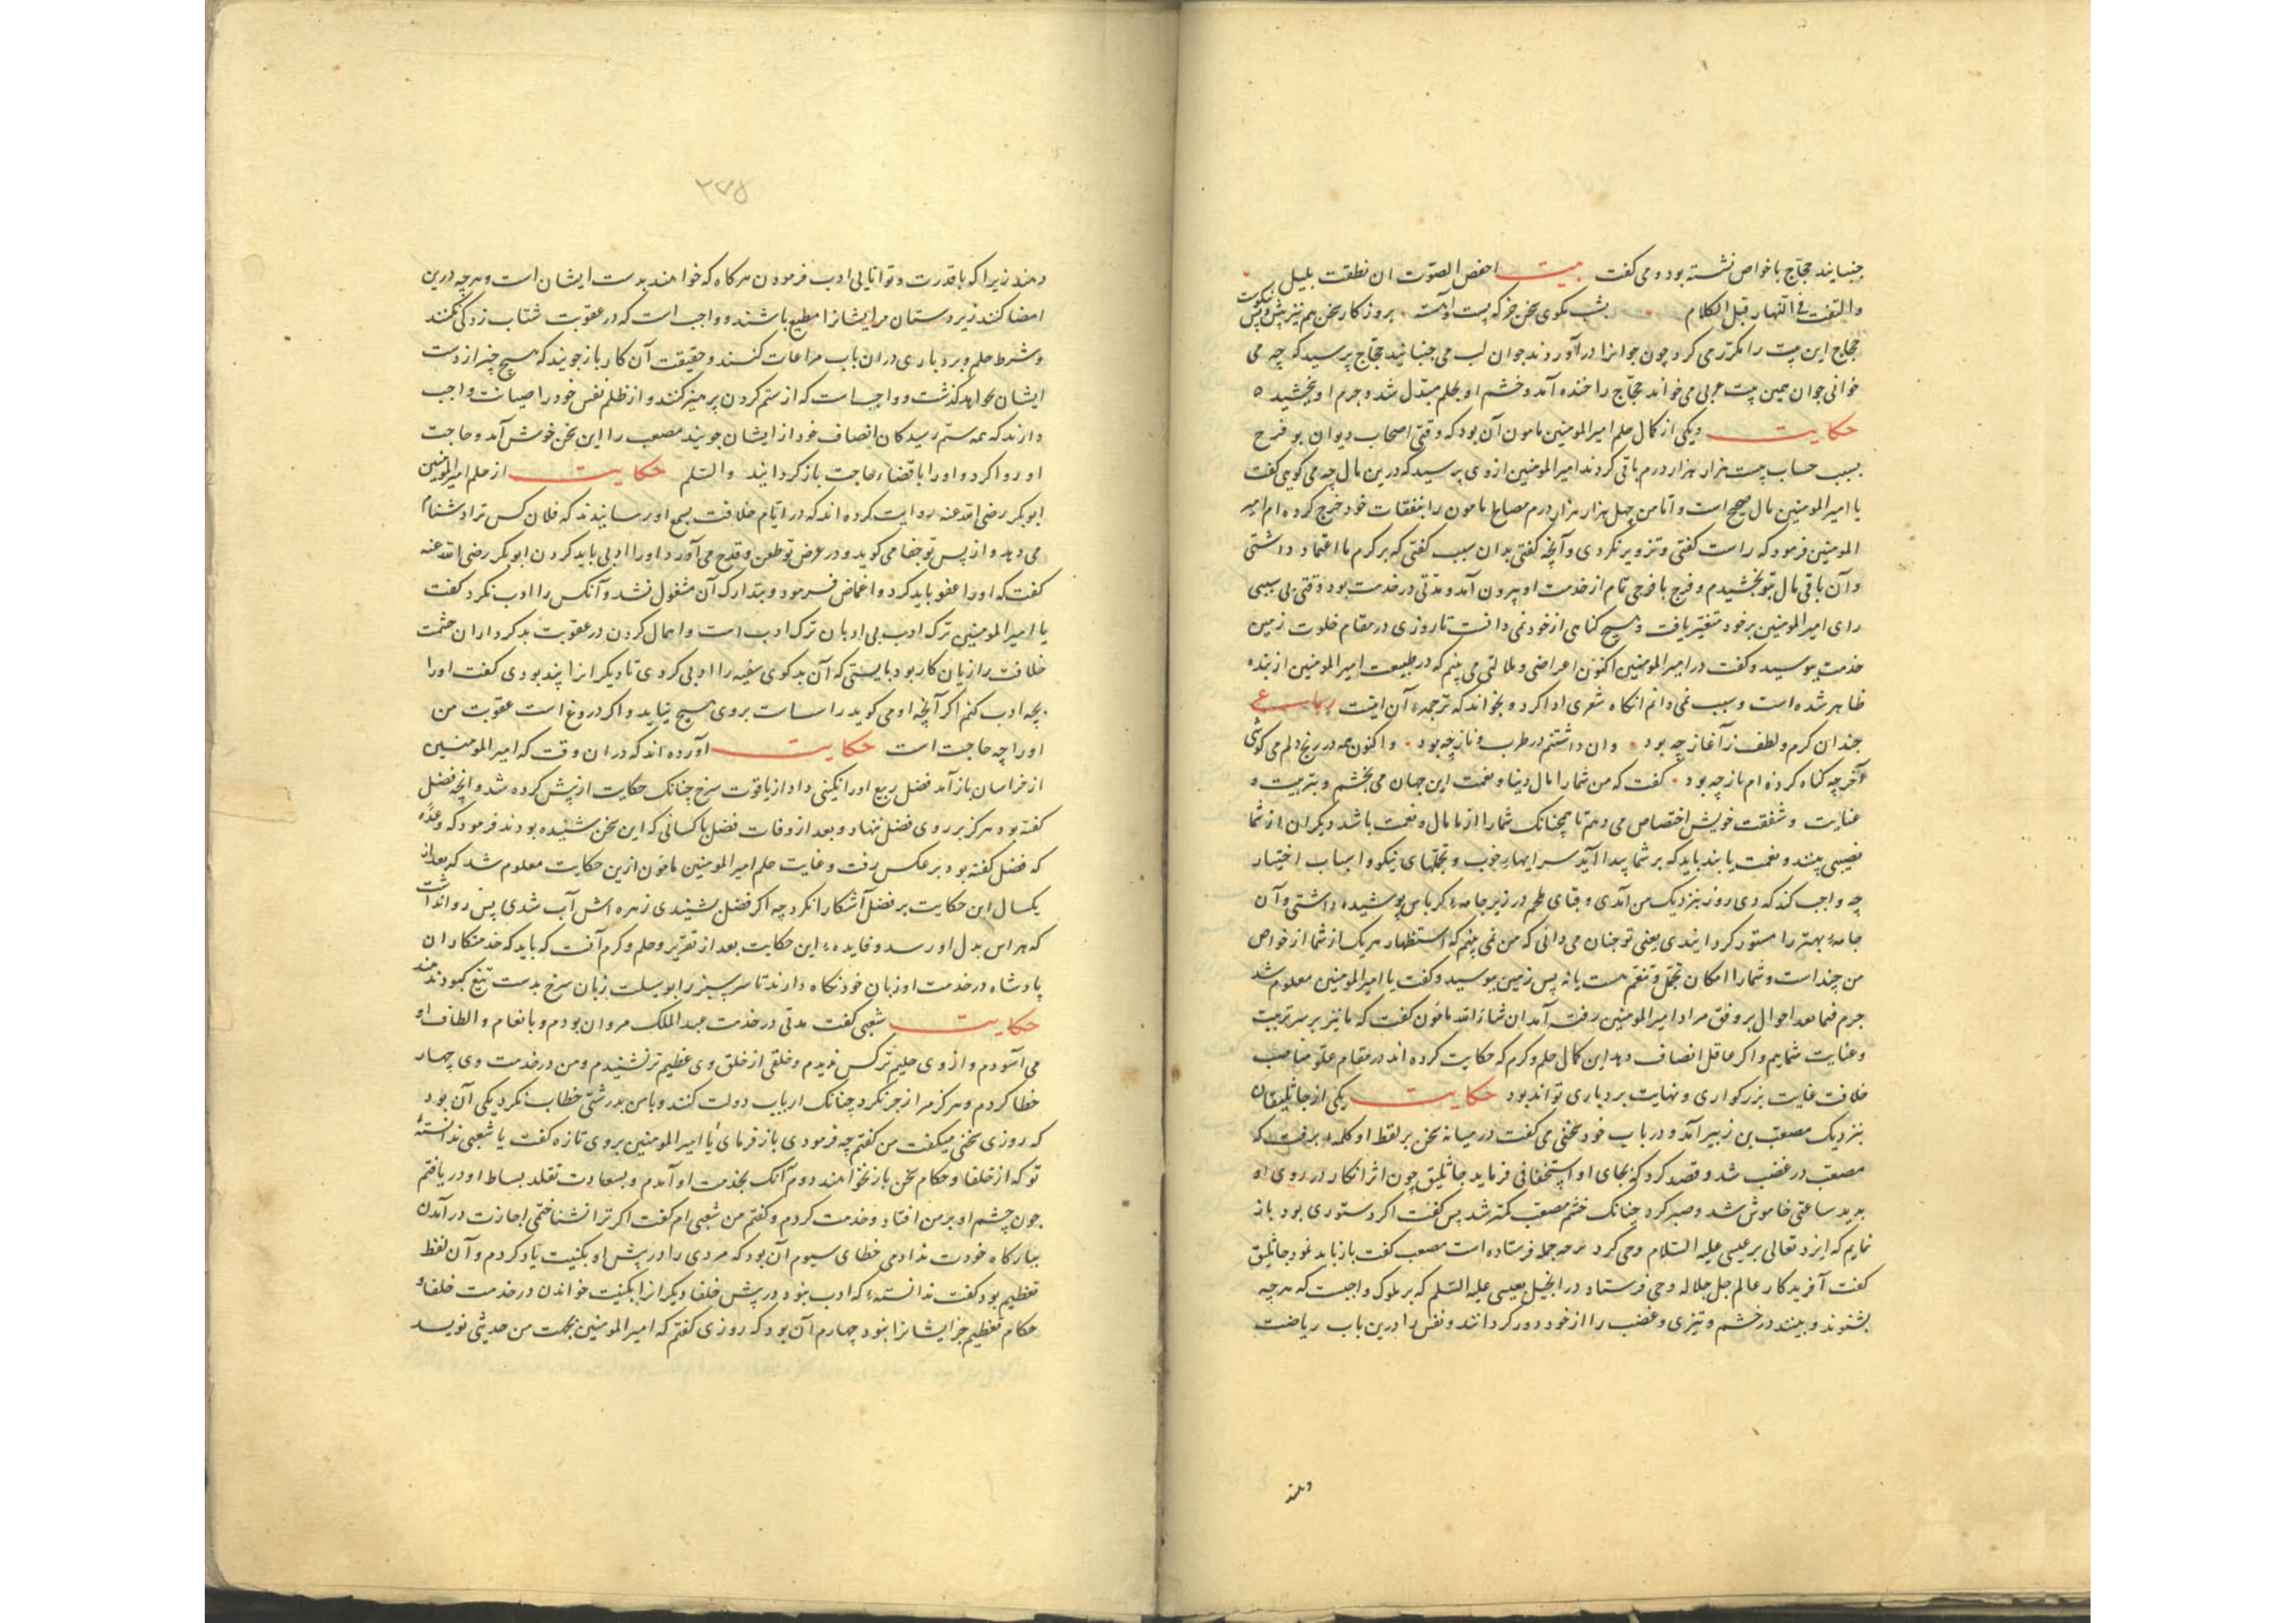 جنبانید حجّاج باخواص نشسته بود و می گفت بیت اخفض الصّوت ان نطقت بلیل
والتفت فی النّهار قبل الکلام بشب مکوی سخن جز که پست و آهسته بروز کار سخن هم نیز پیش و پس نکوست
حجاج این بیت را مکرّر می کرد چون جوانرا در آوردند جوان لب می جنبانید حجّاج پرسید که چه می
خوانی جوان همین بیت عربی می خواند حجّاج را خنده آمد و خشم او بحلم مبدّل شد و جرم او بخشید ه
حکایت دیکر از کمال حلم امیرالمومنین مامون آن بود که وقتی اصحاب دیوان بو فرح
بسبب حساب بیست هزار هزار درم باقی کردند امیرالمومنین از وی پرسید که درین مال چه می کویی کفت
یا امیرالمومنین مال صحیح است و اما من چهل هزار هزار درم مصالح مامون را بنفقات خود خرج کرده ام امیر
المومنین فرمود که راست کفتی و تزویر نکردی و آنچه کفتی بدان سبب کفتی که بر کرم ما اعتماد داشتی
و آن باقی مال بتو بخشیدم و فرج با فرحی تمام از خدمت او بیرون آمد و مدّتی در خدمت بود وقتی بی سببی
رای امیرالمومنین بر خود متغیّر یافت و هیچ کناهی از خود نمی دانست تا روزی در مقام خلوت زمین
خدمت ببوسید و کفت در امیرالمومنین اکنون اعراضی و ملالتی می بینم که در طبیعت امیرالمومنین از بنده
ظاهر شده است و سبب نمی دانم انکاه شعری ادا کرد و بخواند که ترجمهٔ آن اینست رباعی
چندان کرم و لطف ز آغاز چه بود وان داشتنم در طرب و ناز چه بود و اکنون همه در رنج دلم می کوشی
آخر چه کناه کرده ام باز چه بود کفت که من شما را مال دنیا و نعمت این جهان می بخشم و بتربیت و
عنایت و شفقت خویش اختصاص می دهم تا همچنانک شما را از ما مال و نعمت باشد دیکران از شما
نصیبی بینند و نعمت یابند باید که بر شما پیدا آید سرایهاء خوب و تجملهای نیکو و اسباب اختیار
چه واجب کند که دی روز بنزدیک من آمدی و قبای ملحم در زیر جامهٔ کرباس پوشیده داشتی و آن
جامهٔ بهتر را مستور کردانیدی یعنی تو چنان می دانی که من نمی بینم که استظهار هر یک از شما از خواص
من چند است و شما را امکان تجمّل و تنعّم هست یا نه پس زمین ببوسید و کفت یا امیرالمومنین معلوم شد
جرم فیما بعد احوال بر وفق مراد امیرالمومنین رفته آمد ان شاء الله مامون کفت که ما نیز بر سر تربیت
و عنایت شماییم و اکر عاقل انصاف دهد این کمال حلم و کرم که حکایت کرده اند در مقام علوّ مناصب
خلافت غایت بزرکواری و نهایت بردباری تواند بود حکایت یکی از جاثلیقان
بنزدیک مصعب بن زبیر آمد و در باب خود سخنی می کفت در میانه سخن بر لفظ او کلمهٔ برفت که
مصعب در غضب شد و قصد کرد که بجای او استخفافی فرماید جاثلیق چون اثر انکار در روی او
بدید ساعتی خاموش شد و صبر کرد چنانک خشم مصعب کمتر شد پس کفت اکر دستوری بود باز
نمایم که ایزد تعالی بر عیسی علیه السّلام وحی کرد بر چه جمله فرستاده است مصعب کفت باز باید نمود جاثلیق
کفت آفریدکار عالم جل جلاله وحی فرستاد در انجیل بعیسی علیه السّلم که بر ملوک واجبست که هر چه
بشنوند و ببینند در خشم و تیزی و غضب را از خود دور کردانند و نفس را درین باب ریاضت
دهند
۲۷۵
دهند زیرا که با قدرت و توانایی ادب فرمودن هرکاه که خواهند بدست ایشان است و هر چه درین
امضا کنند زیردستان مر ایشانرا مطیع باشند و واجب است که در عقوبت شتاب زدکی نکنند
و شرط حلم و بردباری دران باب مراعات کنند و حقیقت آن کار بازجویند که هیچ چیز از دست
ایشان نخواهد کذشت و واجب است که از ستم کردن پرهیز کنند و از ظلم نفس خود را صیانت واجب
دارند که همه ستم رسیدکان انصاف خود از ایشان جویند مصعب را این سخن خوش آمد و حاجت
او روا کرد و او را با قضاء حاجت باز کردانید والسّلم حکایت از حلم امیرالمومنین
ابوبکر رضی الله عنه روایت کرده اند که در ایّام خلافت بسمع او رسانیدند که فلان کس ترا دشنام
می دهد و از پس تو جفا می کوید و در عرض تو طعن و قدح می آورد او را ادبی باید کردن ابوبکر رضی الله عنه
کفت که او را عفو باید کرد و اغماض فرمود و بتدارک آن مشغول نشد و آنکس را ادب نکرد کفت
یا امیرالمومنین ترک ادب بی ادبان ترک ادب است و اهمال کردن در عقوبت بدکرداران حشمت
خلافت را زیان کار بود بایستی که آن بدکوی سفیه را ادبی کردی تا دیکرانرا پند بودی کفت او را
بچه ادب کنم اکر آنچه او می کوید راست است بر وی هیچ نیاید و اکر دروغ است عقوبت من
او را چه حاجت است حکایت آورده اند که دران وقت که امیرالمومنین
از خراسان باز آمد فضل ربیع او را نکینی داد از یاقوت سرخ چنانک حکایت از پیش کرده شد و آنچه فضل
کفته بود هرکز بر روی فضل ننهاد و بعد از وفات فضل با کسانی که این سخن شنیده بودند فرمود که وعدهٔ
که فضل کفته بود برعکس رفت و غایت حلم امیرالمومنین مامون ازین حکایت معلوم شد که بعد از
یکسال این حکایت بر فضل آشکارا نکرد چه اکر فضل بشنیدی زهره اش آب شدی پس روا نداشت
که هراس بدل او رسد و فایدهٔ این حکایت بعد از تقریر حلم و کرم آنست که باید که خدمتکاران
پادشاه در خدمت او زبان خود نکاه دارند تا سر سبز را بوسیلت زبان سرخ بدست تیغ کبود ندهند
حکایت شعبی کفت مدتی در خدمت عبدالملک مروان بودم و بانعام و الطاف او
می آسودم و از وی حلیم تر کس ندیدم و خلقی از خلق وی عظیم تر نشنیدم و من در خدمت وی چهار
خطا کردم و هرکز مرا زجر نکرد چنانک ارباب دولت کنند و با من بدرشتی خطاب نکرد یکی آن بود
که روزی سخنی میکفت من کفتم چه فرمودی باز فرمای یا امیرالمومنین بروی تازه کفت یا شعبی ندانستهٔ
تو که از خلفا و حکام سخن باز نخواهند دوم آنک بخدمت او آمدم و بسعادت تقلد بساط او دریافتم
چون چشم او بر من افتاد و خدمت کردم و کفتم من شعبی ام کفت اکر ترا نشناختمی اجازت درآمدن
ببارکاه خودت ندادمی خطای سیوم آن بود که مردی را در پیش او بکنیت یاد کردم و آن لفظ
تعظیم بود کفت ندانستهٔ که ادب نبود در پیش خلفا دیکرانرا بکنیت خواندن در خدمت خلفا و
حکام تعظیم جز ایشانرا نبود چهارم آن بود که روزی کفتم که امیرالمومنین بجهت من حدیثی نویسد